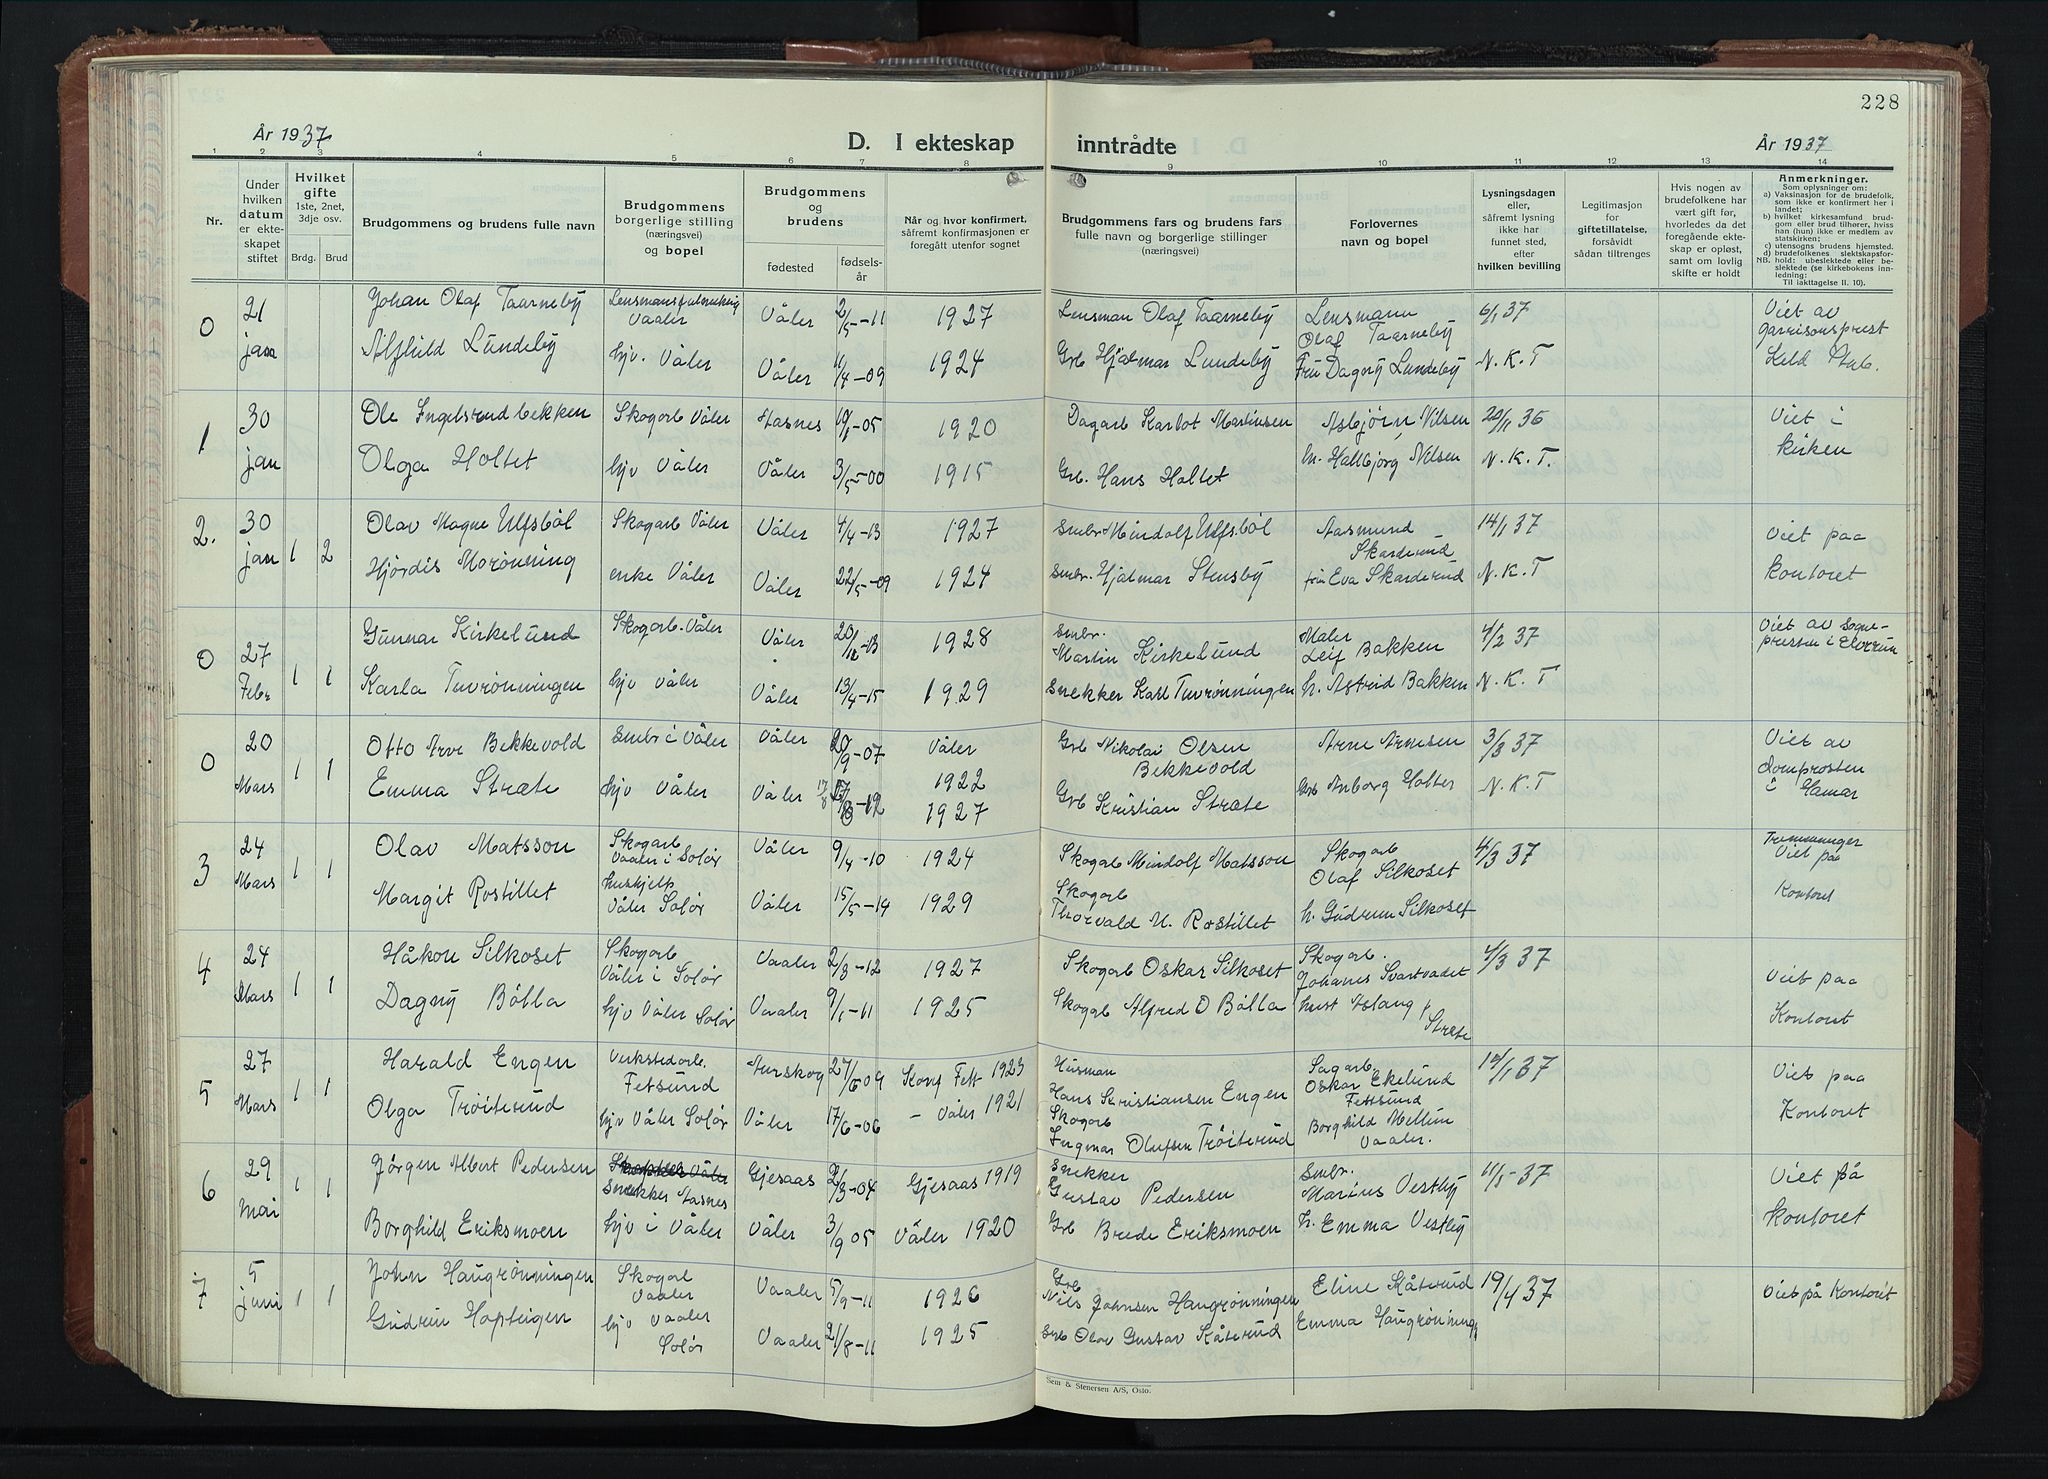 228
År 1937
D. I ekteskap inntrådte
År 1937
1 2 3 4 5 6 7 8 9 10 11 12 13 14
Nr.
Under hvilken datum er ekte- skapet stiftet
Hvilket gifte 1ste, 2net, 3dje osv.
Brdg. Brud
Brudgommens og brudens fulle navn
Brudgommens borgerlige stilling (næringsvei) og bopel
Brudgommens og brudens
fødested
fødsels- år
Når og hvor konfirmert, såfremt konfirmasjonen er foregått utenfor sognet
Brudgommens fars og brudens fars fulle navn og borgerlige stillinger (næringsvei)
Forlovernes navn og bopel
Lysningsdagen eller, såfremt lysning ikke har funnet sted, efter hvilken bevilling
Legitimasjon for giftetillatelse, forsåvidt sådan tiltrenges
Hvis nogen av brudefolkene har vært gift før, hvorledes da det foregående ekte- skap er opløst, samt om lovlig skifte er holdt
Anmerkninger.
Som oplysninger om:
a) Vaksinasjon for de brudefolk, som ikke er konfirmert her i landet;
b) hvilket kirkesamfund brud- gom eller brud tilhører, hviss han (hun) ikke er medlem av statskirken;
c) utensogns brudens hjemsted.
d) brudefolkenes slektskapsfor- hold: ubeslektede eller be- slektede (se kirkebokens inn- ledning:
NB.
Til iakttagelse II. 10).
0 21 jan Johan Olaf Taarneby Vaaler Våler 2/5-11 1927 Lensman Olaf Taarneby Lensmann Olaf Taarneby 6/1 37 Viet av garnisonsprest
Alfhild Lundeby hjv. Våler Våler 11/4-09 1924 Grb Hjalmar Lundeby Fru Dagny Lundeby N.K.T Keld Stub.
1 30 jan Ole Ingelsrudbekken Skogarb Våler Hasnes 19/1-05 1920 Dagarb Karlot Martinsen Asbjørn Nilsen 20/11 36 Viet i
Olga Holtet hjv Våler Våler 3/5-00 1915 Grb. Hans Holtet h. Hallbjørg Nilsen N.K.T. kirken
2. 30 jan 1 2 Olav Magne Ulfsböl Skogarb Våler Våler 4/4-13 1927 Smbr Mindolf Ulfsböl Aasmund Skarderud 14/1 37 Viet paa
Hjördis Morönning enke Våler Våler 22/5-09 1924 Smbr. Hjalmar Stensby fru Eva Skarderud N.K.T kontoret
0 27 Febr 1 1 Gunnar Kirkelund Skogarb. Våler Våler 20/12-13 1928 Smbr. Martin Kirkelund Maler Leif Bakken 4/2 37 Viet av sogne- presten i Elverum
Karla Tuvrønningen hjv Våler Våler 13/4-15 1929 Snekker Karl Tuvrønningen h. Astrid Bakken N.K.T
0 20 Mars 1 1 Otto Arve Bekkevold Smbr i Våler Våler 20/9-07 Våler 1922 Grb Nikolai Olsen Bekkevold Arne Arnesen 3/3 37 Viet av domprosten
Emma Stræte hjv Våler Våler 17/8 -12 1927 Grb Kristian Stræte Grb Anborg Holter N.K.T i Hamar
3 24 Mars 1 1 Olav Matsson Skogarb Vaaler i Solör Våler 9/4-10 1924 Skogarb Mindolf Matsson Skogarb Olaf Silkoset 4/3 37 Tremenninger Viet paa
Margit Rostillet hushjelp Våler Solör Våler 15/5-14 1929 Skogarb Thorvald M. Rostillet h. Gudrun Silkoset Kontoret
4 24 Mars 1 1 Håkon Silkoset Skogarb Våler i Solör Vaaler 2/3-12 1927 Skogarb Oskar Silkoset Skogarb. Johanes Svartvadet 4/3 37 Viet paa
Dagny Bölla hjv Våler Solör Vaaler 9/1-11 1925 Skogarb Alfred O Bölla hust Aslaug Stræte Kontoret
5 27 Mars 1 1 Harald Engen Verkstedarb. Fetsund Aurskog 27/6 09 Konf Fett 1923 Husman Hans Kristiansen Engen Sagarb. Oskar Ekelund Fettsund 12/1 37 Viet paa
Olga Tröiterud hjv Våler Solör Våler 17/6-06 - Våler 1921 Skogarb Ingmar Olufsen Tröiterud Borghild Mellem Vaaler. Kontoret
6 29 Mai 1 1 Jörgen Albert Pedersen Snekker Aasnes Gjesaas 2/3-04 Gjesaas 1919 Snekker Gustav Pedersen Smbr. Marius Vestby 11/5-37 Viet på
Borghild Eriksmoen hjv i Våler Våler 3/9 05 Våler 1920 Grb Brede Eriksmoen h. Emma Vestby kontoret
7 5 juni 1 1 John Haugrønningen Skogarb Vaaler Vaaler 5/9-11 1926 Grb Nils Johnsen Haugrønningen Eline Kåterud 19/4 37 Viet på Kontoret
Gudrun Hopteigen hjv Vaaler Solør Vaaler 21/8-11 1925 Smb Olav Gustav Kåterud Emma Haugrønning
Sem & Stenersen A/S, Oslo.